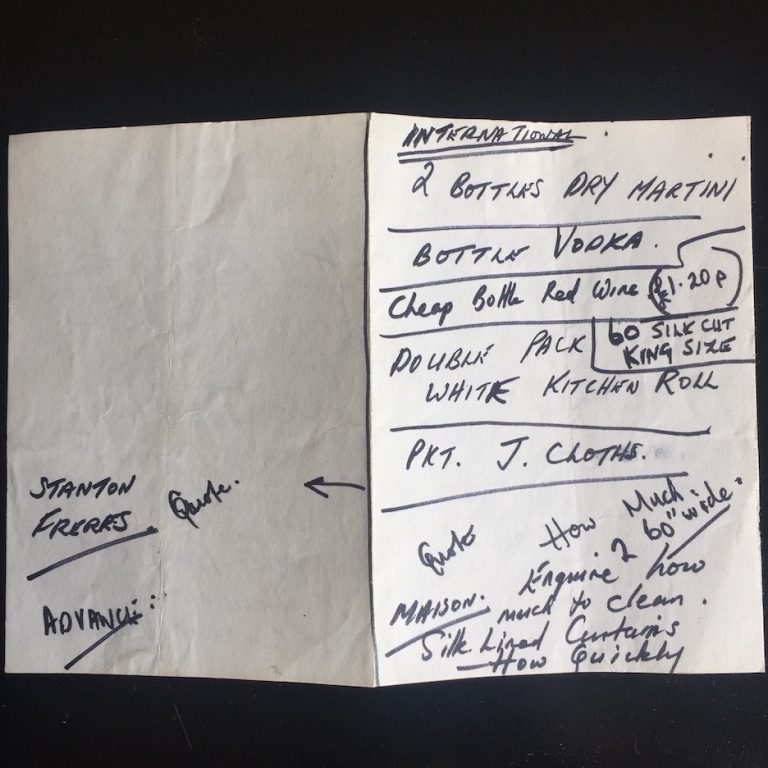 INTERNATIONAL.
2 BOTTLES DRY MARTINI
BOTTLE VODKA.
Cheap Bottle Red Wine £1.20p
60 SILK CUT
KING SIZE
DOUBLE PACK
WHITE KITCHEN ROLL
PKT. J. CLOTHS.
Quote
How Much
60" wide.
MAISON.
Enquire how
much to clean.
Silk Lined Curtains
How Quickly
STANTON
FRERES.
Quote.
ADVANCE: